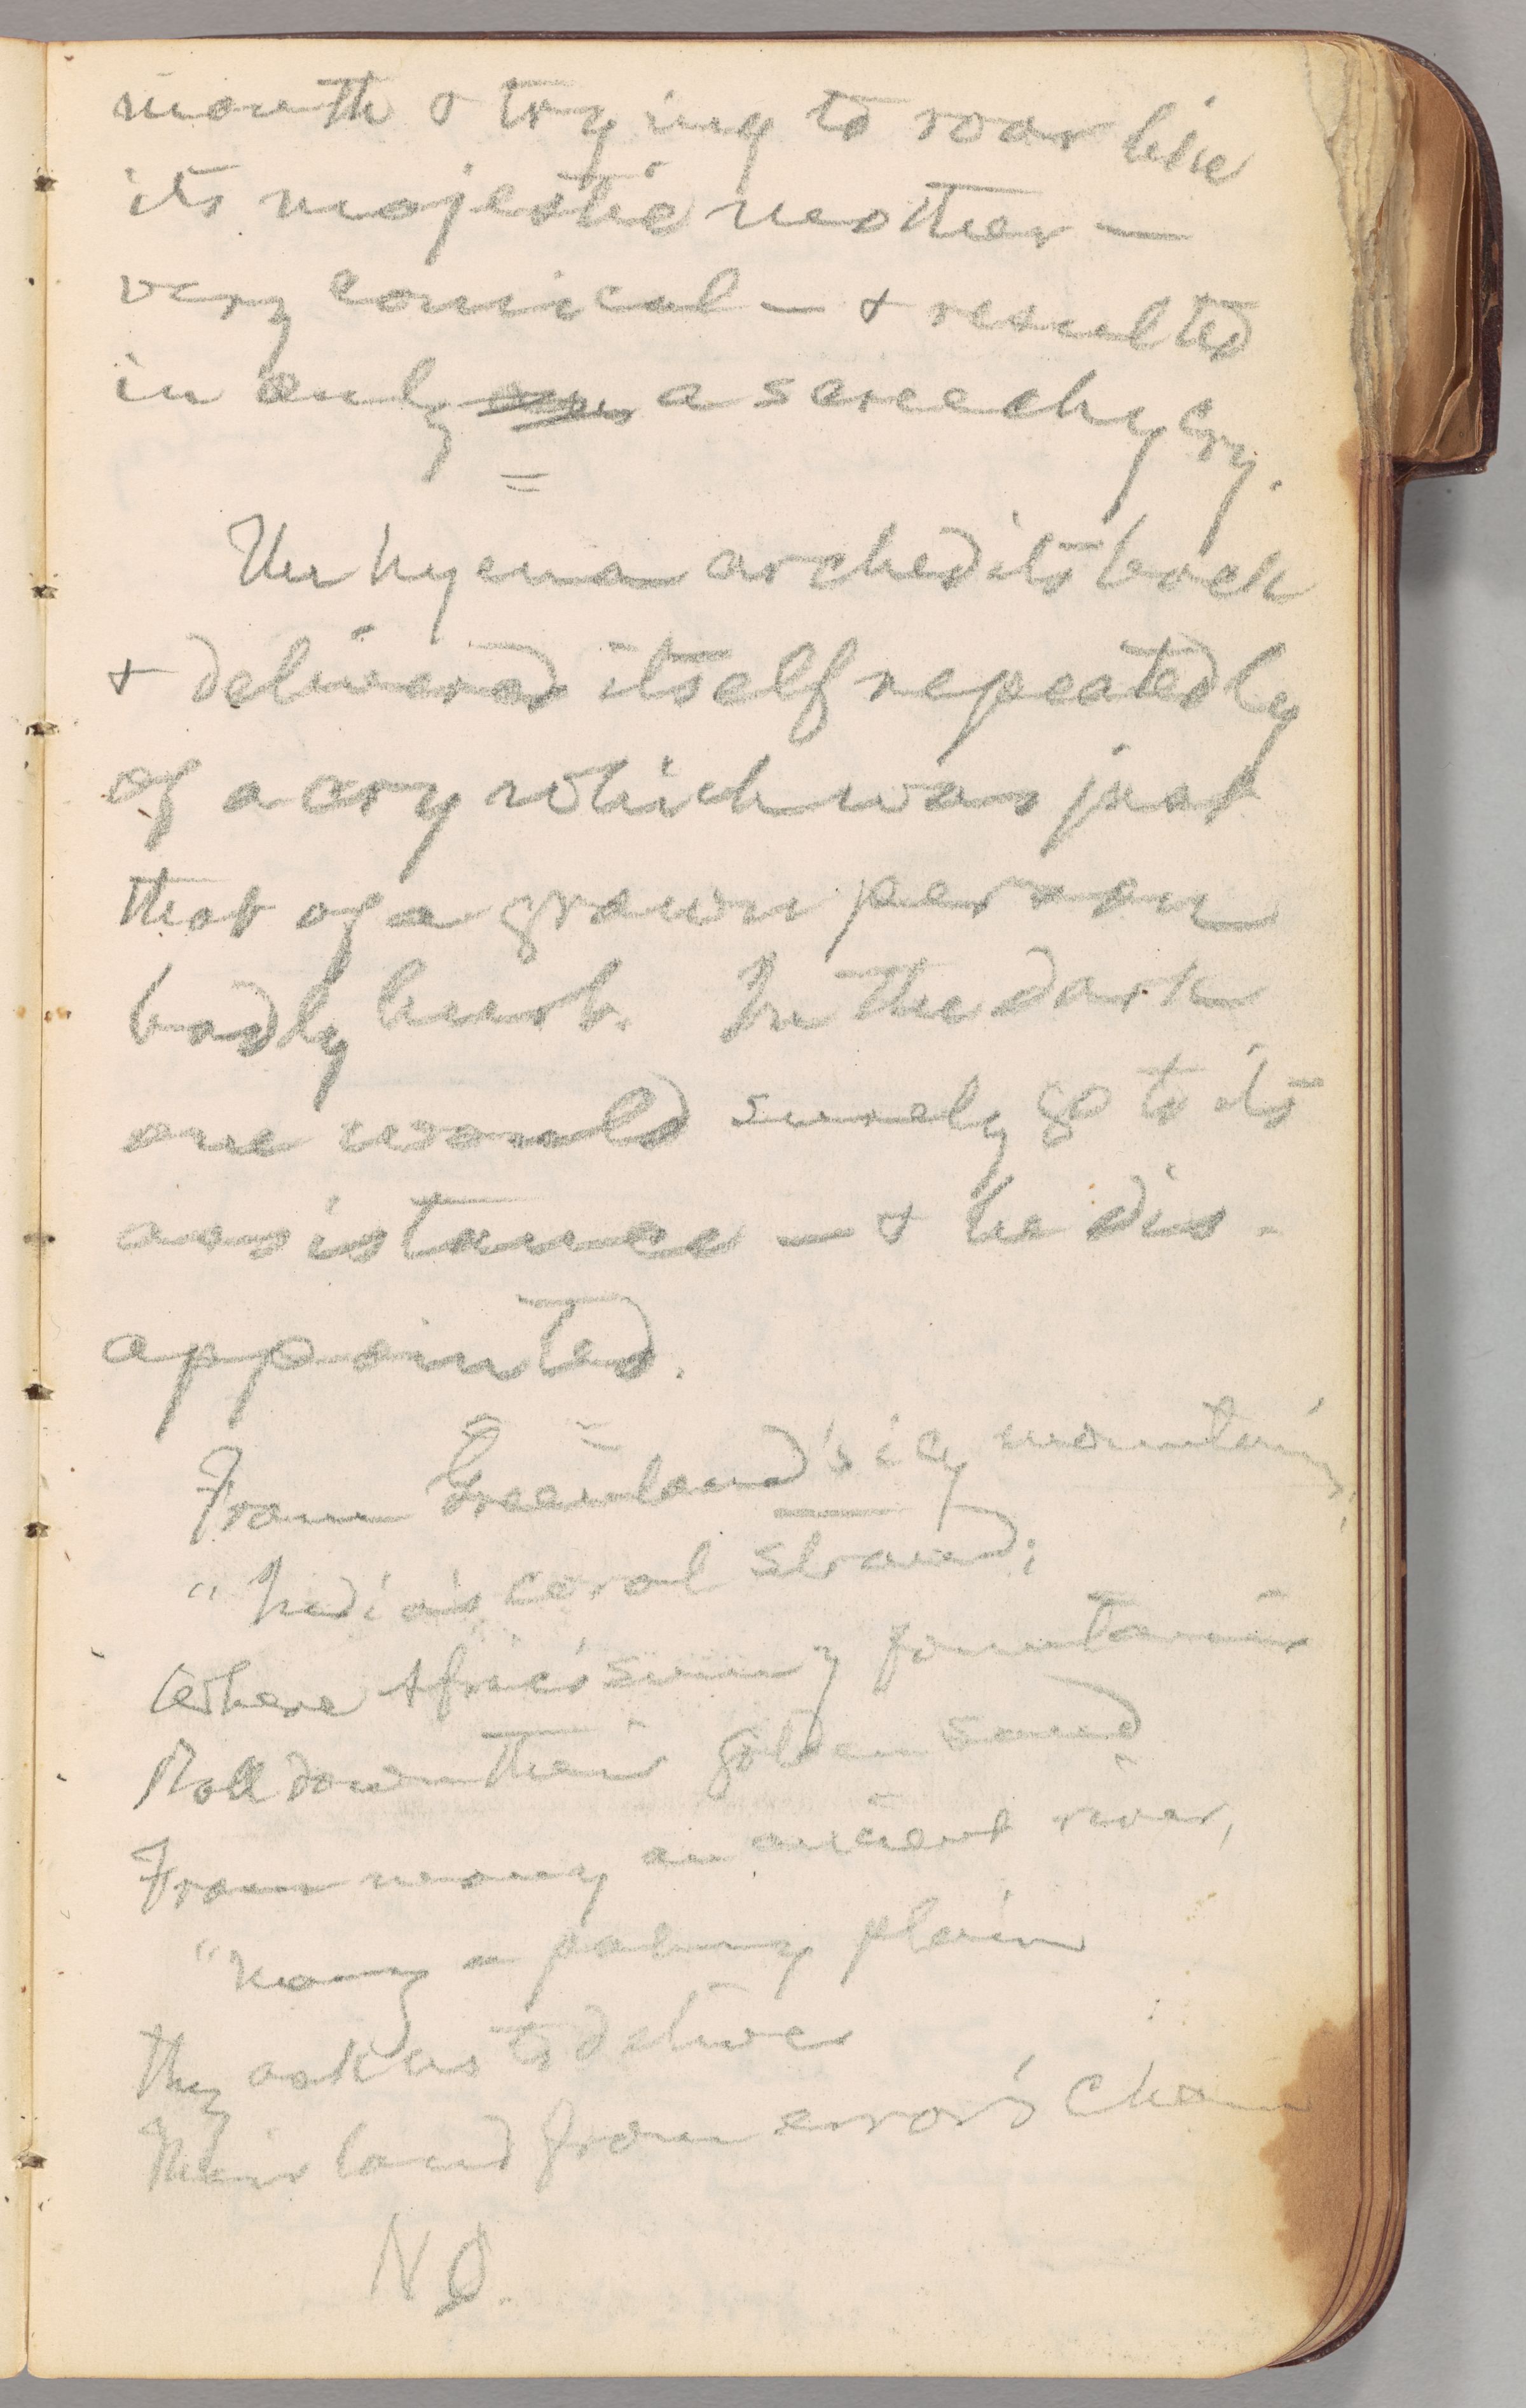 mouth & trying to roar like
its majestic mother —
very comical — & resulted
in only a screechy cry.
=
The hyena arched its back
& delivered itself repeatedly
of a cry which was just
that of a grown person
badly hurt. In the dark
one would surely go to its
assistance — & be dis-
appointed.
From Greenland's icy mountains,
" India's coral strand;
Where Afric's sunny fountains
Roll down their golden sand
From many an ancient river,
" many a palmy plain
They ask us to deliver
Their land from error's chain
NO.